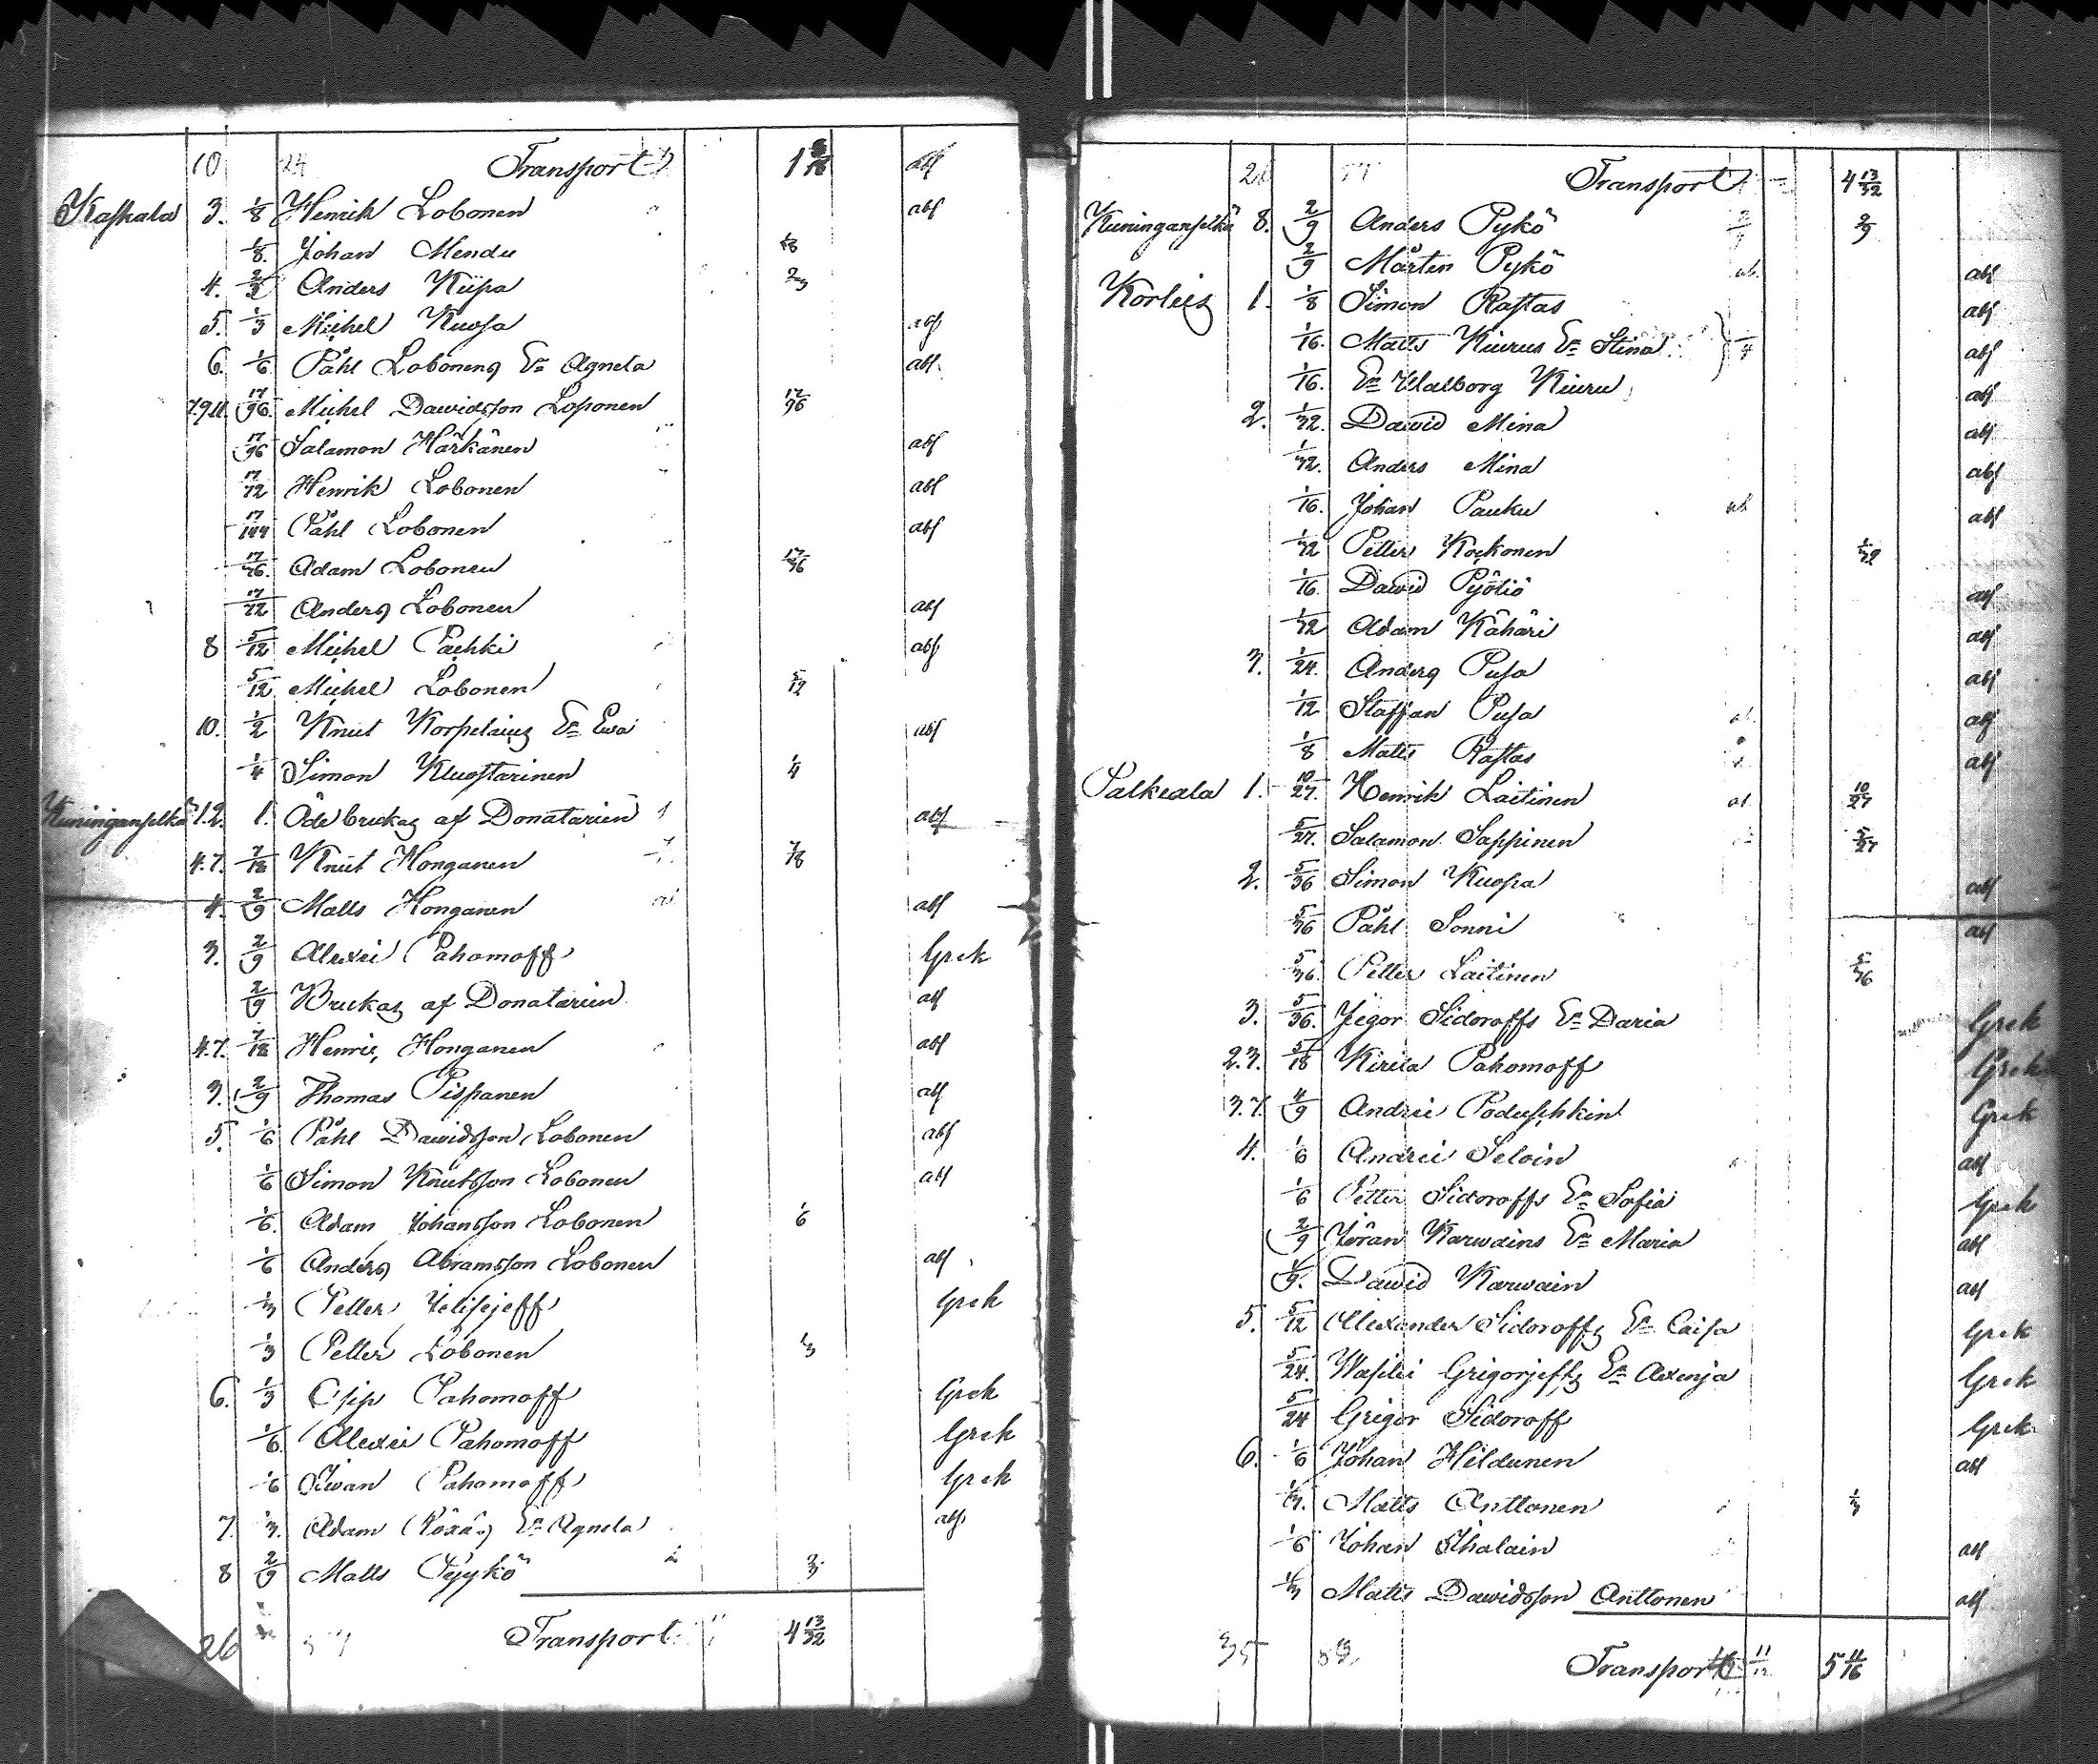 10 24 Transport 1 abs
Kaskala 3. 1/8 Henrik Lobonen abs
1/8. Johan Mendu 1/8
4. 2/3 Anders Kiipa 2/3
5. 1/3 Michel Kuosa abs
6. 1/6 Påhl Lobonens En Agneta abs.
7.9.11. 17/96. Michel Dawidsson Loponen 17/96
17/96 Salamon Härkänen abs
17/72 Henrik Lobonen abs
17/144 Påhl Lobonen abs
17/36. Adam Lobonen 17/36
17/72 Anders Lobonen abs
8 5/12 Michel Pachki abs
5/12 Michel Lobonen 5/12
10. 1/2 Knut Korpelains En Ewa abs
1/4 Simon Kluostarinen 1/4
Kuninganselkä 1.2. 1. Öde brukas af Donatarien 1 abs
4.7. 7/18 Knut Honganen 7/18
4. 2/9 Matts Honganen abs
3. 2/9 Alexei Pahomoff Grek
2/9 Brukas af Donatarien abs
4.7. 7/18 Henric Honganen abs
3. 2/9 Thomas Pispanen abs
5. 1/6 Påhl Dawidsson Lobonen abs
1/6 Simon Knutsson Lobonen abs
1/6. Adam Johansson Lobonen 1/6
1/6 Anders Abramsson Lobonen abs
1/3 Petter Jelisejeff Grek
1/3 Petter Lobonen 1/3
6. 1/3 Osip Pahomoff Grek
1/6. Alexei Pahomoff Grek
1/6 Iwan Pahomoff Grek
7. 1/3. Adam En Agneta abs
8 2/9 Matts Pyykö 2/3
26 57 Transport 4 13/32
57 Transport 4 13/32
Kuninganselkä 8. 2/9 Anders Pykö 2/9 2/9
2/9 Mårten Pykö ab. abs
Korleis 1. 1/8 Simon Rastas abs
1/16. Matts Kiurus En Stina 1/4 abs
1/16. En Walborg Kiuru abs
2. 1/32. Dawid Mina abs
1/32. Anders Mina abs
1/16. Johan Pauku ab abs
1/32 Petter Kockonen 1/32
1/16. Dawid Pyöliö abs
1/32 Adam Kähäri abs
3. 1/24. Anders Pusa abs
1/12 Staffan Pusa ab. abs
1/8 Matts Rastas abs
Palkeala 1. 10/27. Henrik Laitinen ab. 10/27
5/27. Salamon Sappinen 5/27
2. 5/36 Simon Kuosa abs
5/36 Påhl Sonni abs
5/36. Petter Laitinen 5/36
3. 5/36. Jegor Sidoroffs En Daria Grek
2.3. 5/18 Kirila Pahomoff Grek
3.7. 4/9 Andrei Poduschkin Grek
4. 1/6 Andrei Seloin abs
1/6 Petter Sidoroffs En Sofia Grek
2/9 Jöran Karwains En Maria abs
1/9. Dawid Karwain abs
5. 5/12 Alexander Sidoroffs En Caisa Grek
5/24. Wasilei Grigorjeffs En Axenja Grek
5/24 Grigor Sidoroff Grek
6. 1/6 Johan Hildunen abs
1/3. Matts Anttonen 1/3
1/6 Johan Ihalain abs
1/3 Matts Dawidsson Anttonen abs
35 Transport 5 11/16